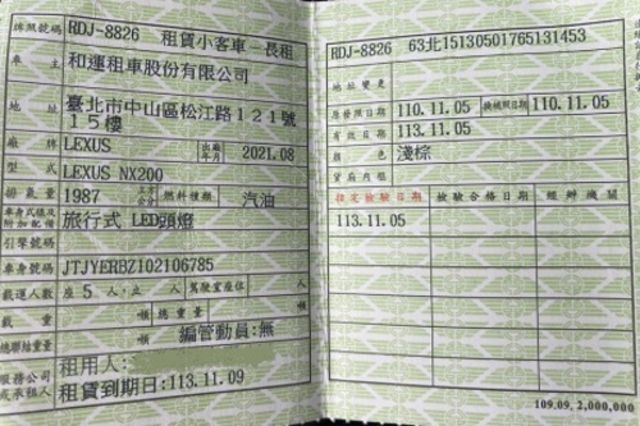 牌照號碼 RDJ-8826 租賃小客車－長租
車主 和運租車股份有限公司
地址 臺北市中山區松江路１２１號
１５樓
廠牌 LEXUS 出廠年月 2021.08
型式 LEXUS NX200
排氣量 1987 立方公分 燃料種類 汽油
車身式樣及附加配備 旅行式 LED頭燈
引擎號碼
車身號碼 JTJYERBZ102106785
載運人數 座 5 人，立 人 駕駛室座位 人
載重 噸 總重量 噸
總聯結重量 噸 編管動員:無
服務公司或承租人 租用人:
租賃到期日:113.11.09
RDJ-8826 63北15130501765131453
地址變更
原發照日期 110.11.05 換補照日期 110.11.05
有效日期 113.11.05
顏色 淺棕
貨廂內框
指定檢驗日期 檢驗合格日期 經辦機關
113.11.05
109.09. 2,000,000